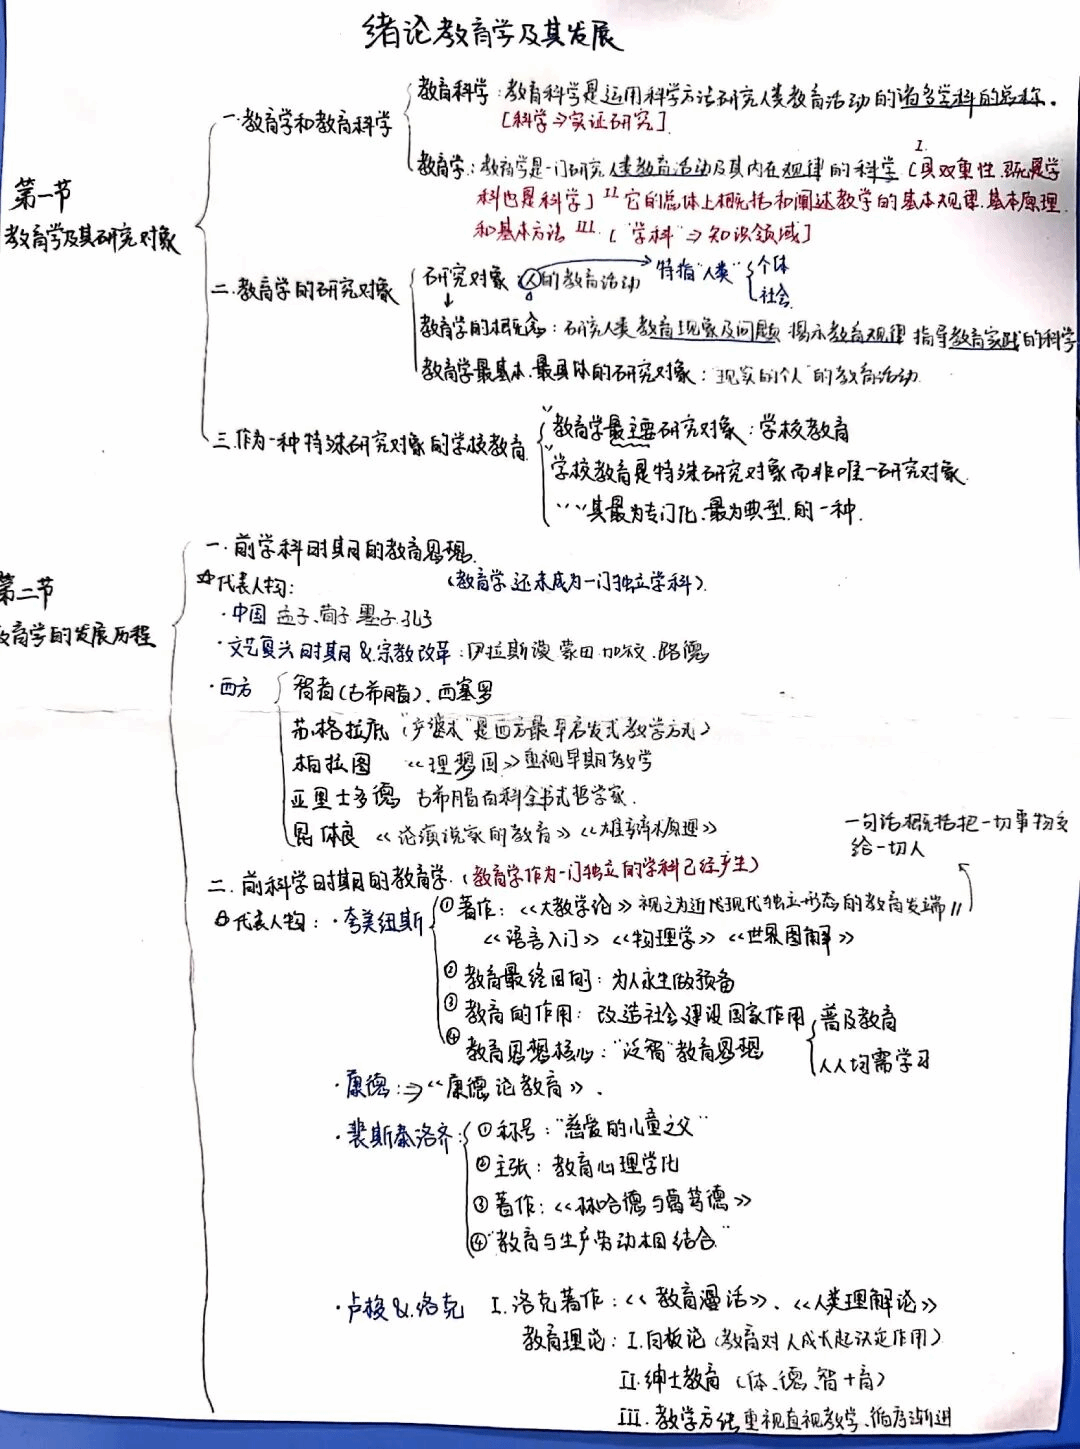 绪论教育学及其发展
第一节
教育学及其研究对象
一.教育学和教育科学
教育科学:教育科学是运用科学方法研究人类教育活动的诸多学科的总称.
[科学⇒实证研究]
教育学:教育学是一门研究人类教育活动及其内在规律的科学 I.[具双重性.既是学
科也是科学] II 它的总体上概括和阐述教学的基本规律.基本原理
和基本方法 III.["学科"⇒知识领域]
二.教育学的研究对象
研究对象:人的教育活动 特指"人类" 个体
社会
↓
教育学的概念:研究人类教育现象及问题 揭示教育规律 指导教育实践的科学
教育学最基本.最具体的研究对象:"现实的个人"的教育活动
三.作为一种特殊研究对象的学校教育
教育学最主要研究对象:学校教育
学校教育是特殊研究对象而非唯一研究对象.
其最为专门化.最为典型.的一种.
第二节
教育学的发展历程
一.前学科时期的教育思想.
☆代表人物: (教育学还未成为一门独立学科).
·中国 孟子.荀子.墨子.孔子
·文艺复兴时期&宗教改革:伊拉斯谟.蒙田.加尔文.路德
·西方 智者(古希腊).西塞罗
苏格拉底 ("产婆术"是西方最早启发式教学方式)
柏拉图 《理想国》重视早期教学
亚里士多德 古希腊百科全书式哲学家.
昆体良 《论演说家的教育》《雄辩术原理》
一句话概括把一切事物交
给一切人
二.前科学时期的教育学.(教育学作为一门独立的学科已经产生)
代表人物:·夸美纽斯 ①著作:《大教学论》视之为近代现代独立形态的教育发端
《语言入门》《物理学》《世界图解》
②教育最终目的:为人永生做预备
③教育的作用:改造社会建设国家作用 普及教育
④教育思想核心:"泛智"教育思想 人人均需学习
·康德:⇒《康德论教育》.
·裴斯泰洛齐: ①称号:"慈爱的儿童之父"
②主张:教育心理学化
③著作:《林哈德与葛笃德》
④"教育与生产劳动相结合"
·卢梭&.洛克 I.洛克著作:《教育漫话》、《人类理解论》
教育理论:I.白板论(教育对人成长起决定作用)
II.绅士教育 (体、德、智十育)
III.教学方法重视直观教学、循序渐进